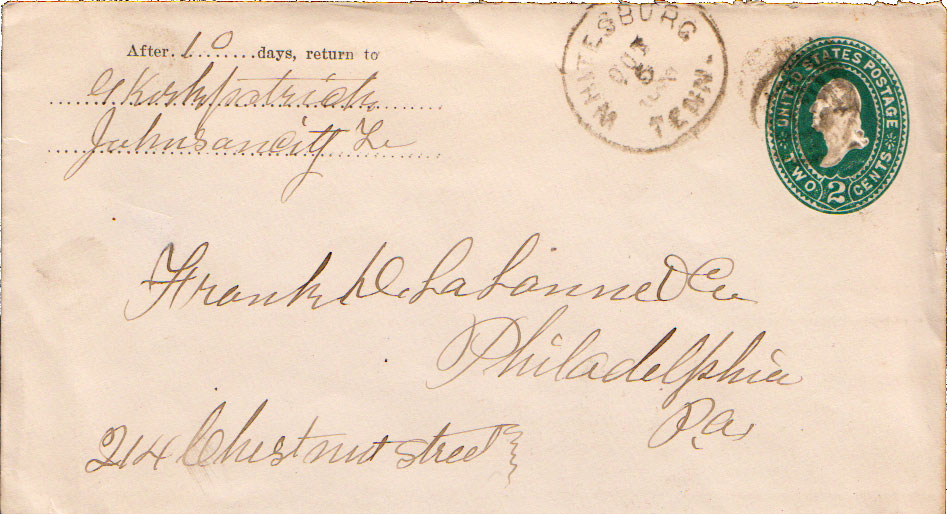 After 10 days, return to
G Kirkpatrick
Johnsoncity Te
WHITESBURG
TENN.
UNITED STATES POSTAGE
TWO 2 CENTS
Frank D. LaLanne & Co
Philadelphia
Pa
214 Chestnut street